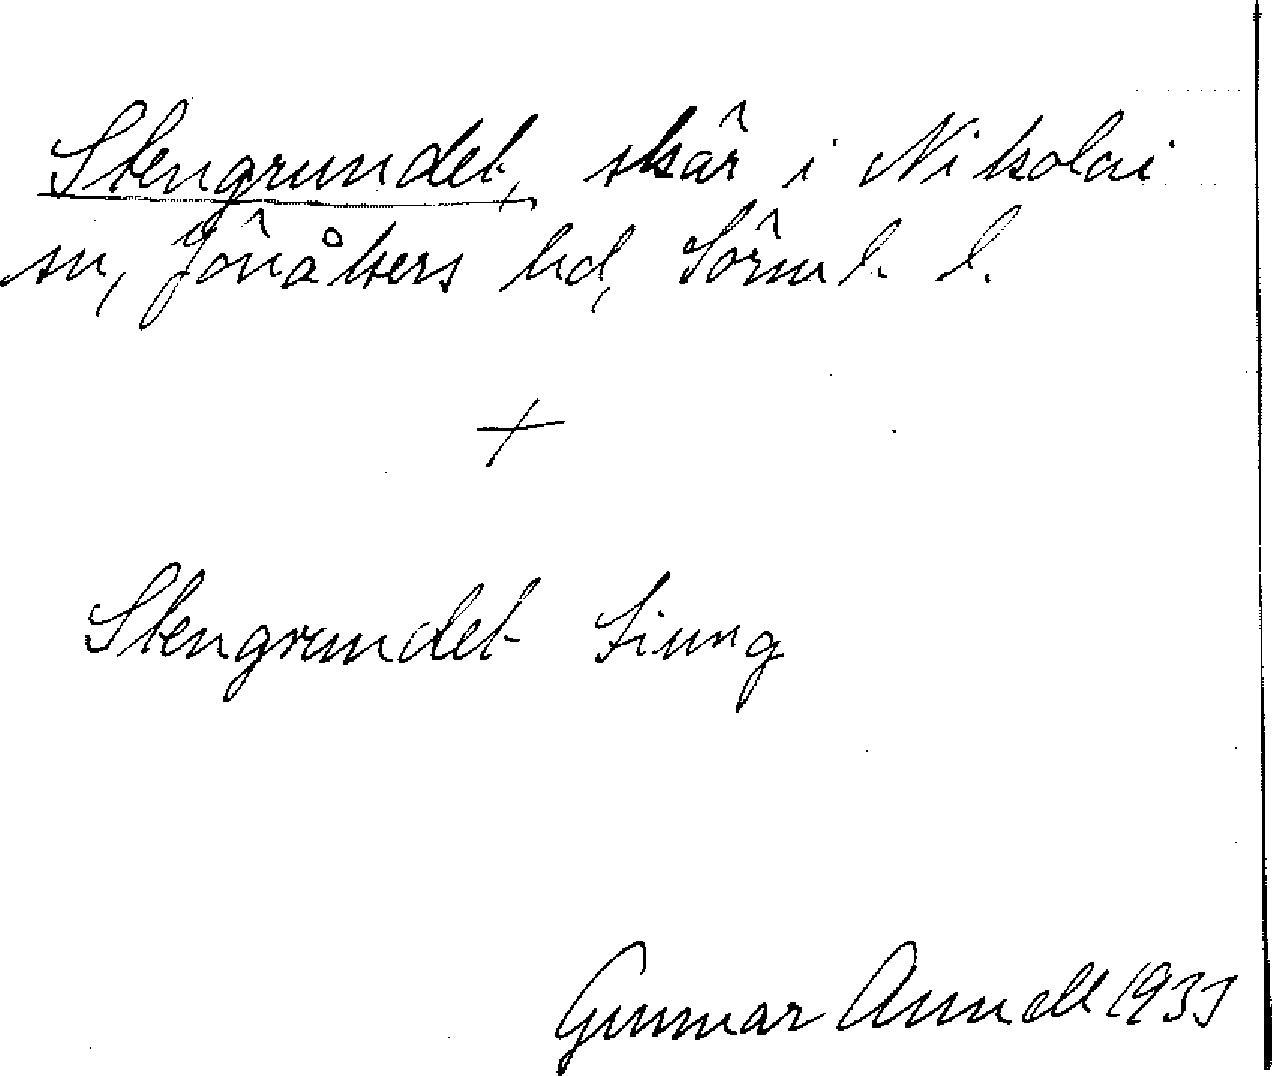 Stengrundet, skär i Nikolai
sn, Jönåkers hd, Sörml. l.
+
Stengrundet Ljung
Gunnar Annell 1935